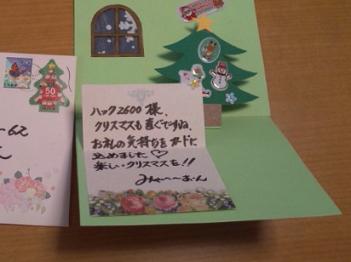 50
ハック2600 様、
クリスマスも直ぐですね、
お礼の気持ちをカードに
込めました♡
楽しいクリスマスを!!